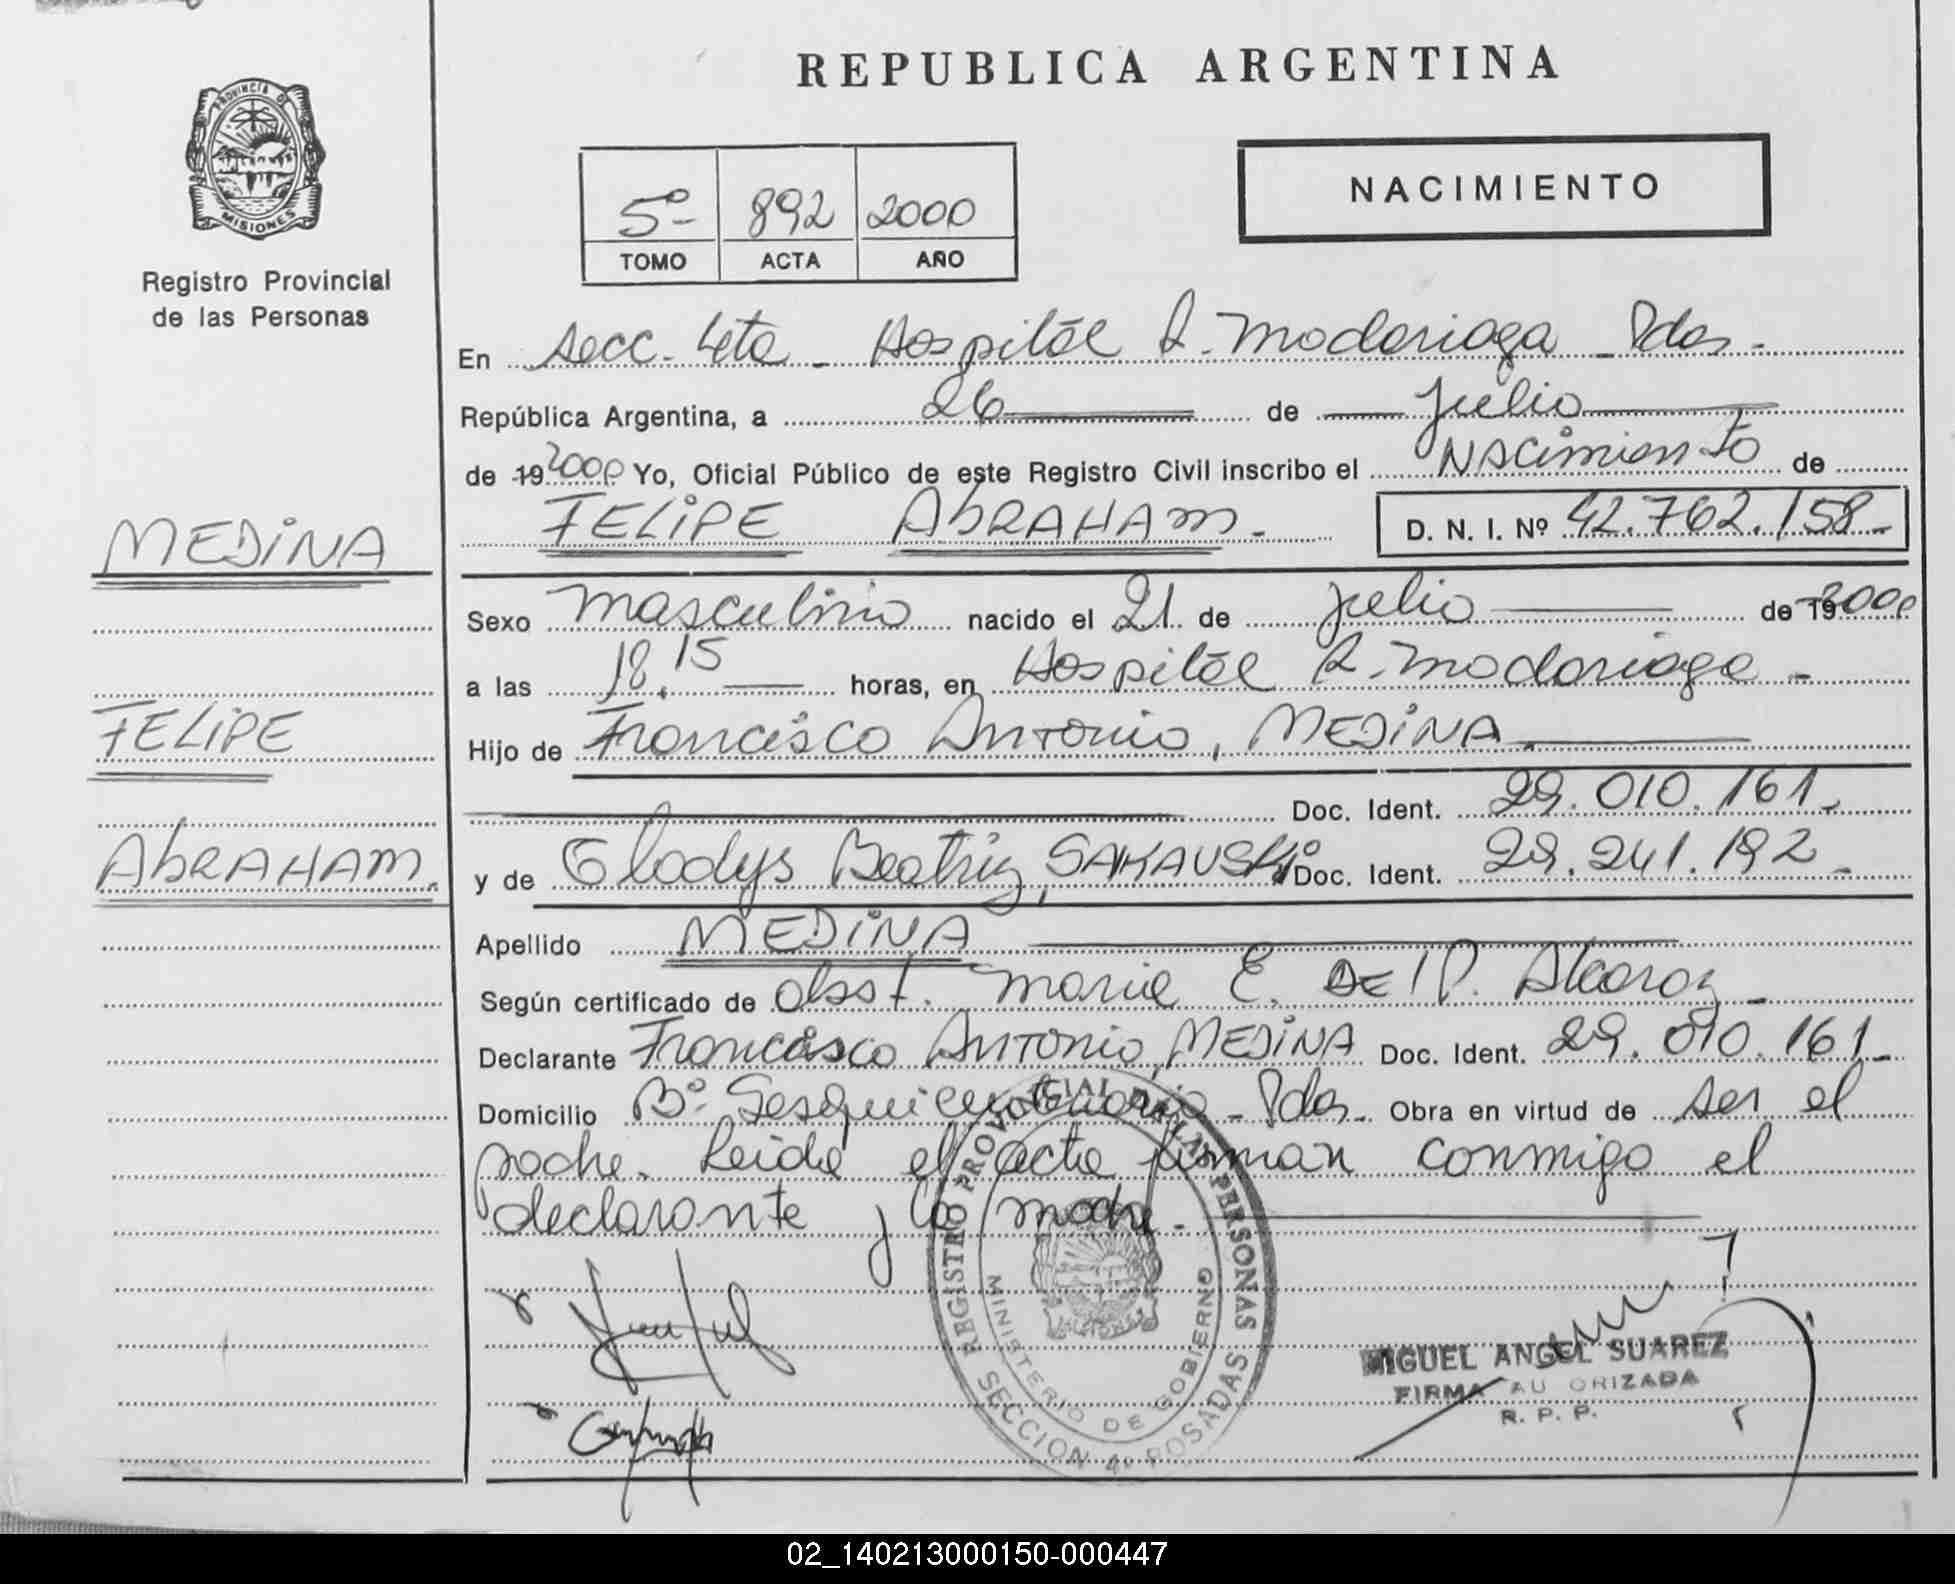 REPUBLICA ARGENTINA
PROVINCIA DE MISIONES
Registro Provincial
de las Personas
5º 892 2000
TOMO ACTA AÑO
NACIMIENTO
En Secc. 4ta - Hospital R. Madariaga - Pdas.
República Argentina, a 26 de Julio
de 19 2000 Yo, Oficial Público de este Registro Civil inscribo el NACimiento de
FELIPE AbRAHAM.- D. N. I. Nº 42.762.158-
MEDINA
Sexo masculino nacido el 21 de Julio de 19 2000
a las 18.15 horas, en Hospital R. Madariaga -
FELIPE
Hijo de Francisco Antonio, MEDINA
Doc. Ident. 29.010.161.
AbRAHAM.
y de Gladys Beatriz, SAKAUSKi Doc. Ident. 29.241.192-
Apellido MEDINA
Según certificado de obst. Maria E. DE P. Alcaraz -
Declarante Francisco Antonio, MEDINA Doc. Ident. 29.010.161-
Domicilio Bº Sesquicentenario - Pdas. Obra en virtud de ser el
padre. Leida el acta firman conmigo el
declarante y la madre.-
REGISTRO PROVINCIAL DE LAS PERSONAS
MINISTERIO DE GOBIERNO
SECCION 4º POSADAS
MIGUEL ANGEL SUAREZ
FIRMA AU ORIZADA
R. P. P.
02_140213000150-000447